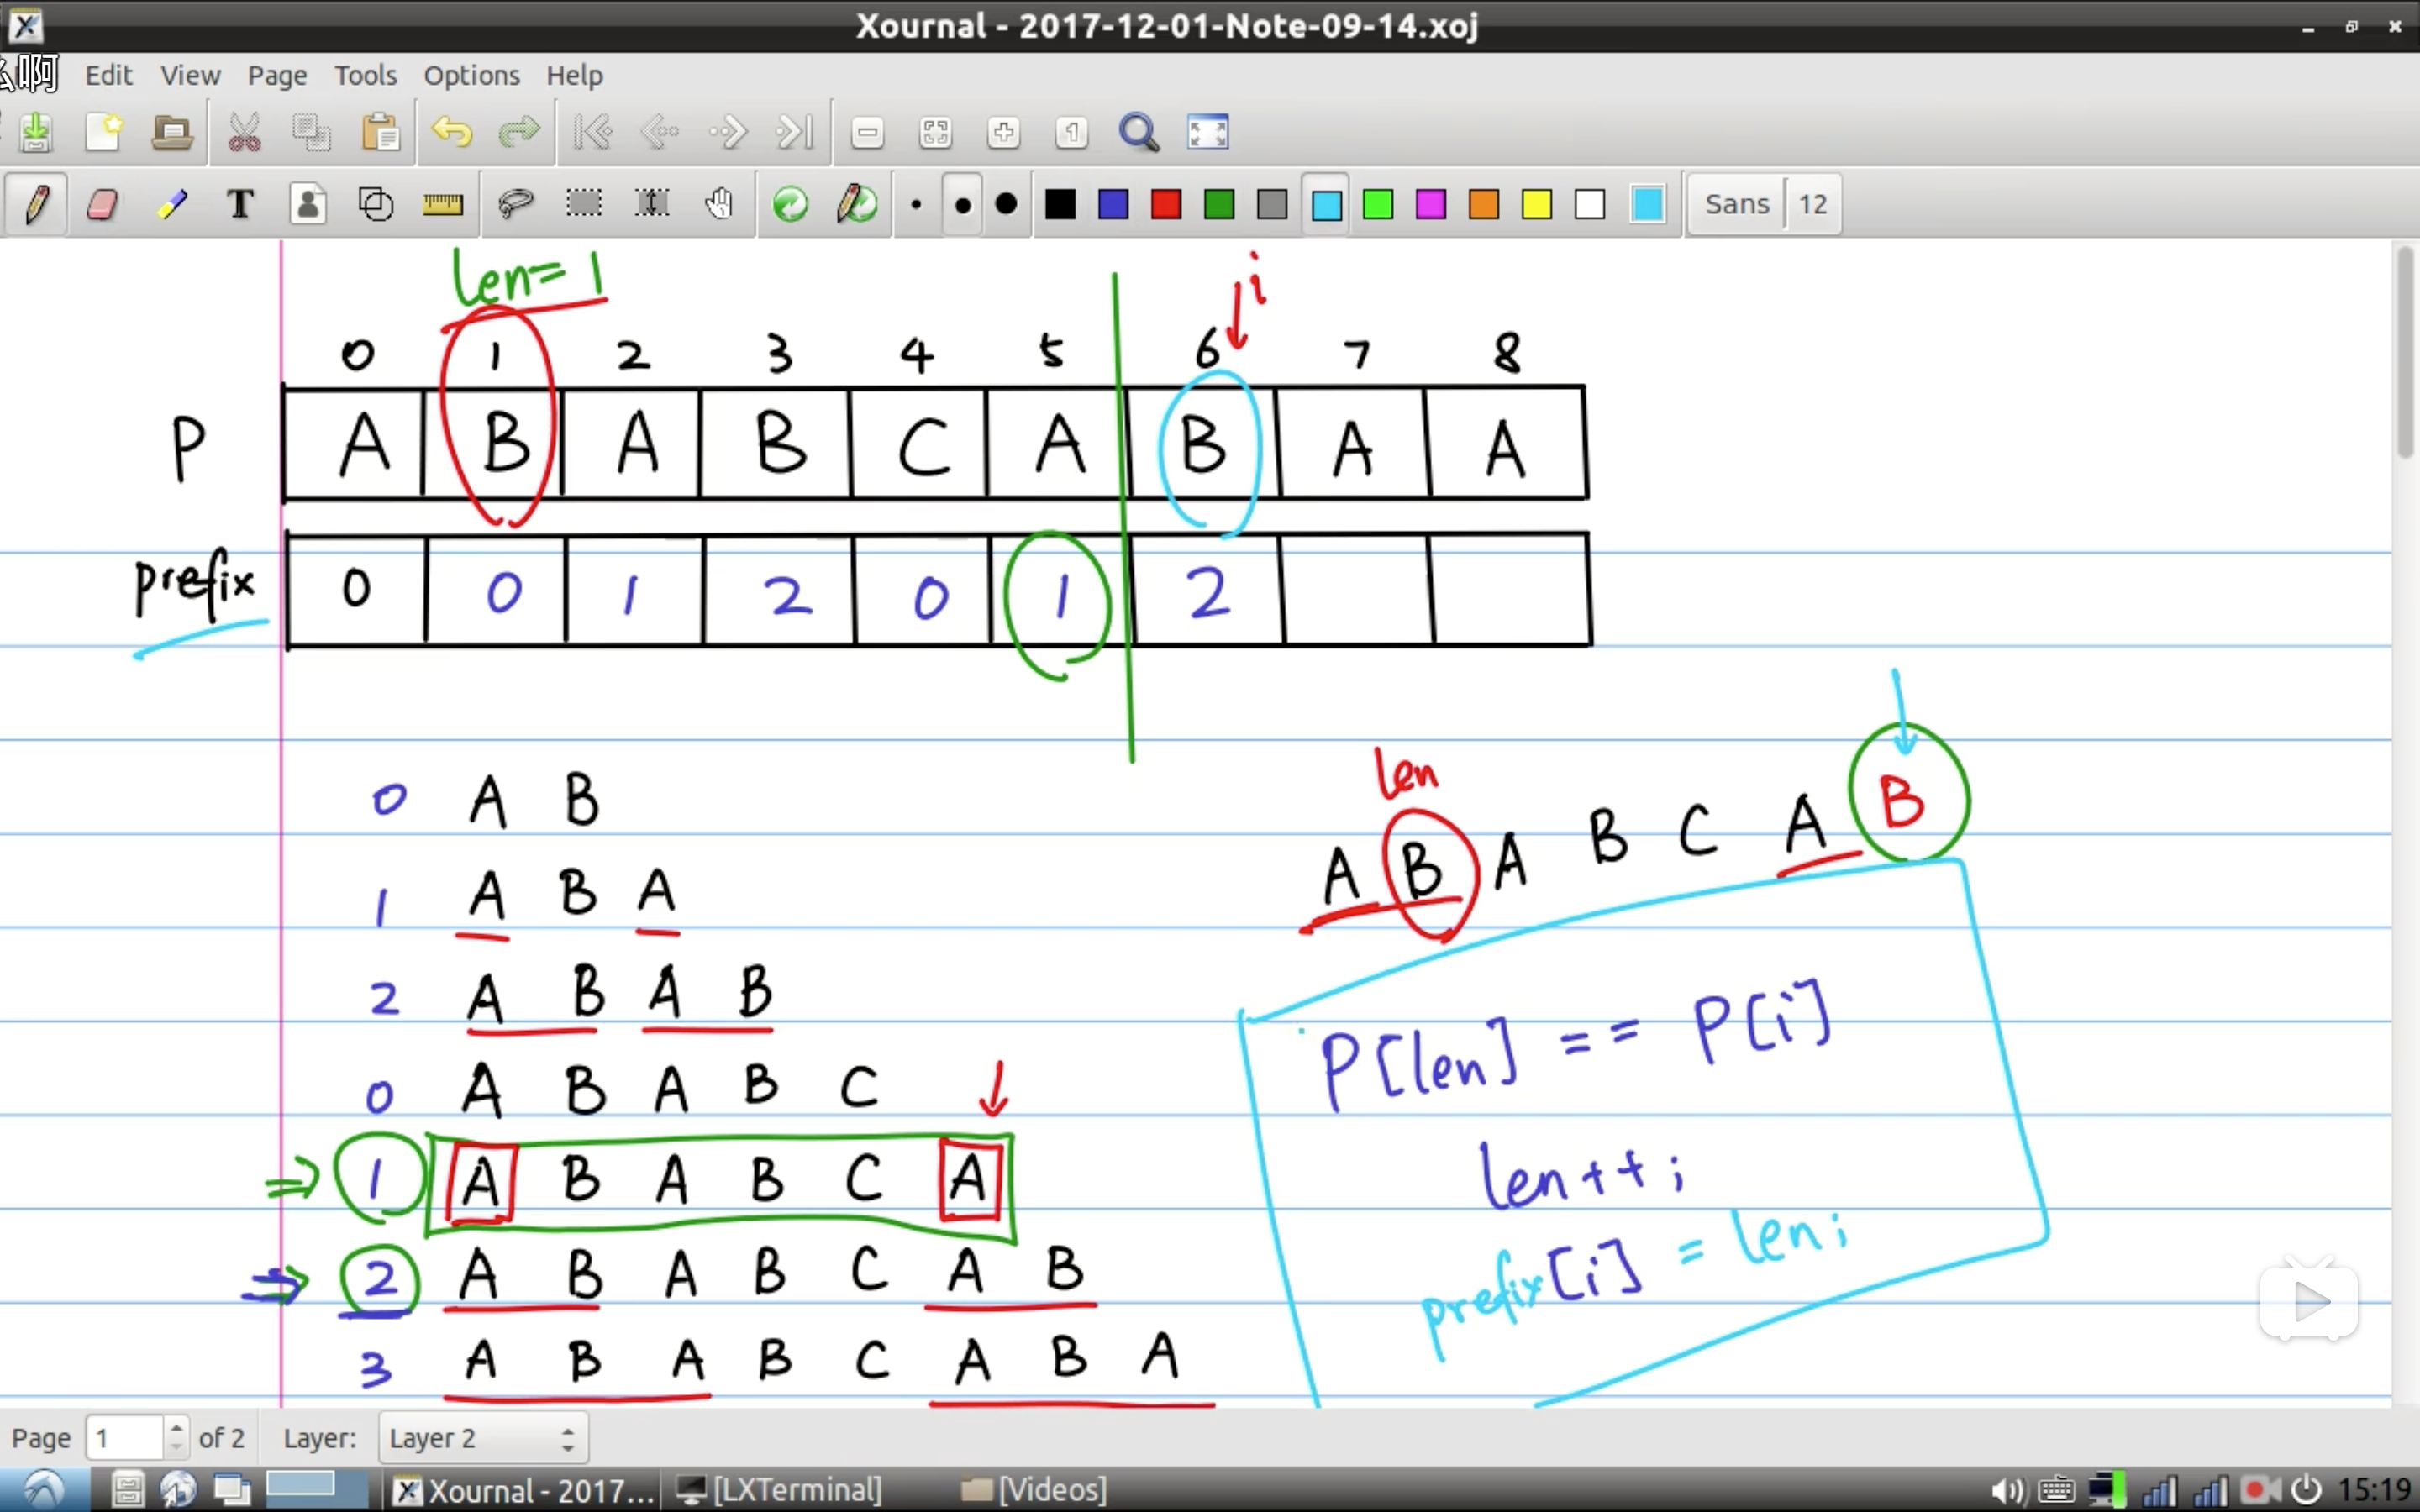 Xournal - 2017-12-01-Note-09-14.xoj
么啊 Edit View Page Tools Options Help
T Sans 12
len=1
i
0 1 2 3 4 5 6 7 8
P A B A B C A B A A
prefix 0 0 1 2 0 1 2
len
A B A B C A B
0 A B
1 A B A
2 A B A B
0 A B A B C
1 A B A B C A
2 A B A B C A B
3 A B A B C A B A
P[len] == P[i]
len++;
prefix[i] = len;
Page 1 of 2 Layer: Layer 2
Xournal - 2017... [LXTerminal] [Videos] 15:19